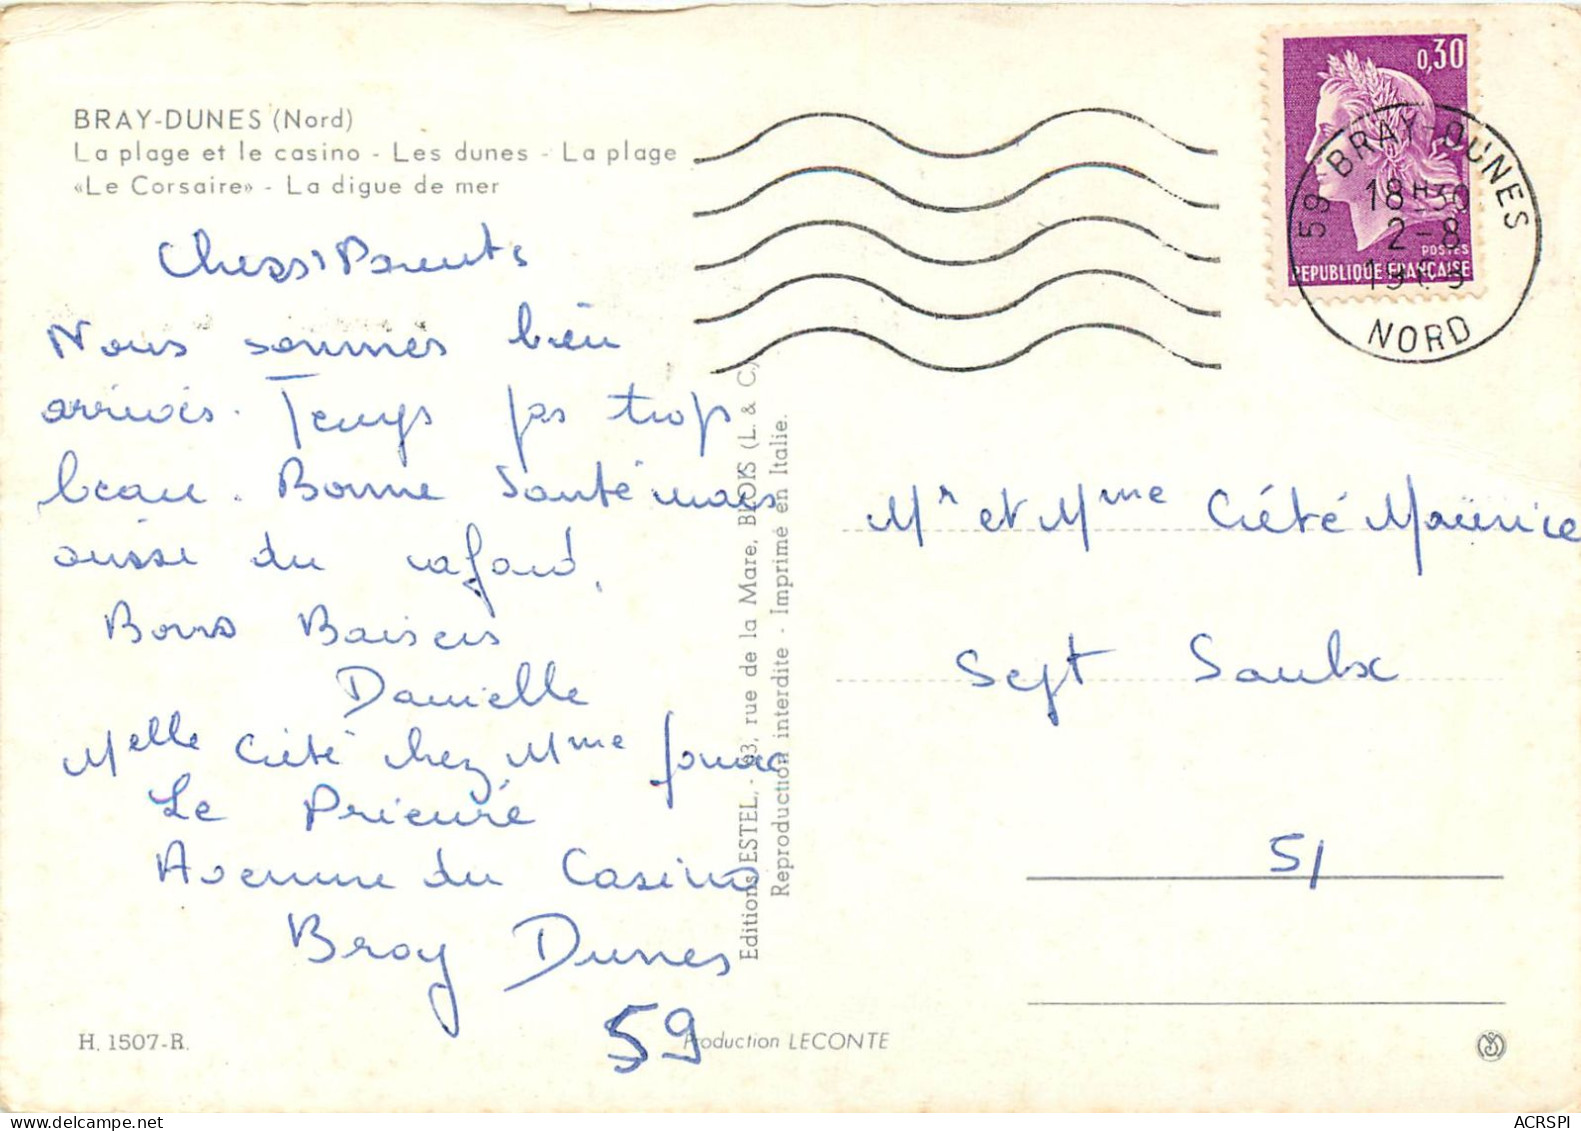 BRAY-DUNES (Nord)
La plage et le casino - Les dunes - La plage
«Le Corsaire» - La digue de mer
Chers Parents
Nous sommes bien
arrivés. Temps pas trop
beau. Bonne Santé mais
aussi du cafard.
Bons Baisers
Danielle
Melle Ciété chez Mme
Le Prieuré
Avenue du Casino
Bray Dunes
59
H. 1507-R.
Production LECONTE
Editions ESTEL, - 93, rue de la Mare, BLOIS (L. & C.)
Reproduction interdite - Imprimé en Italie.
0,30
POSTES
REPUBLIQUE FRANÇAISE
59 BRAY-DUNES
18H30
2-8
NORD
Mr et Mme Ciété Maurice
Sept Saulx
51
ACRSPI
delcampe.net